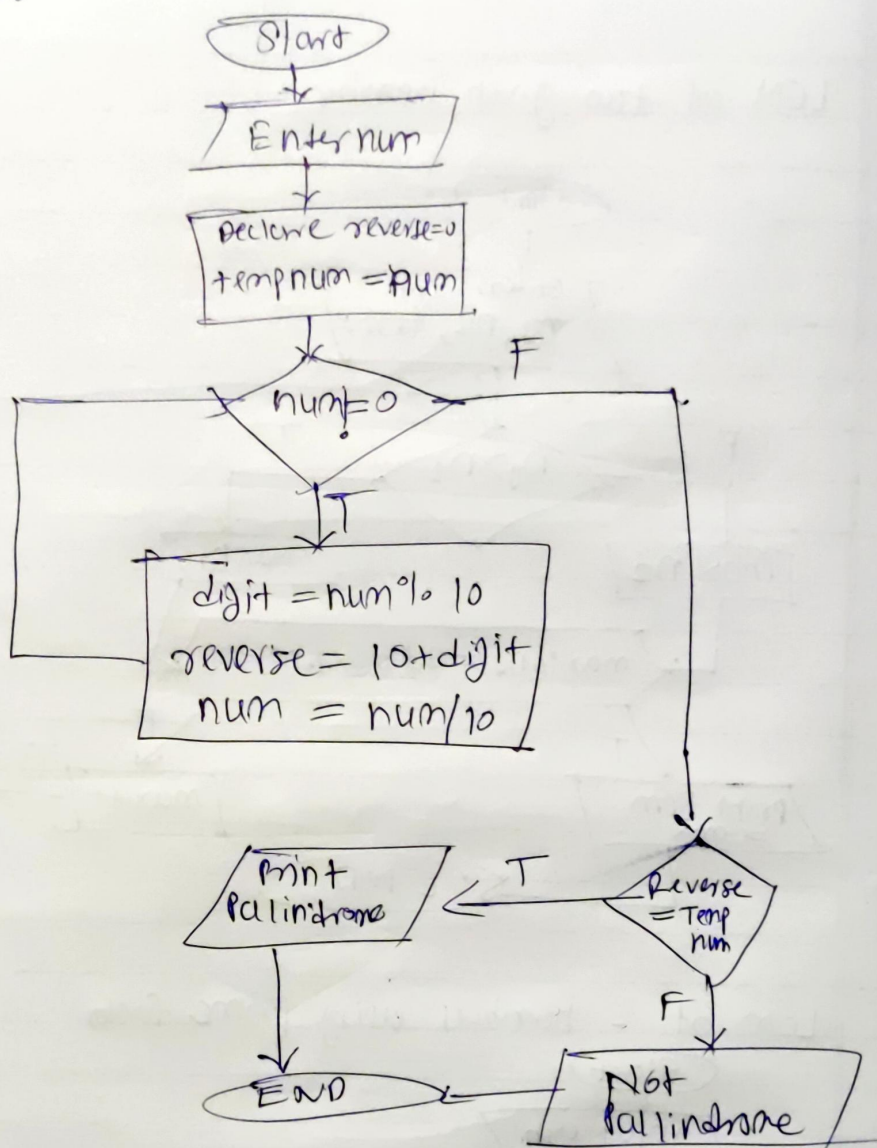 Start
Enter num
Declare reverse=0
tempnum = num
num!=0
F
T
digit = num % 10
reverse = 10+digit
num = num/10
Reverse
= Temp
num
T
Print
Pallindrome
F
Not
Pallindrome
END